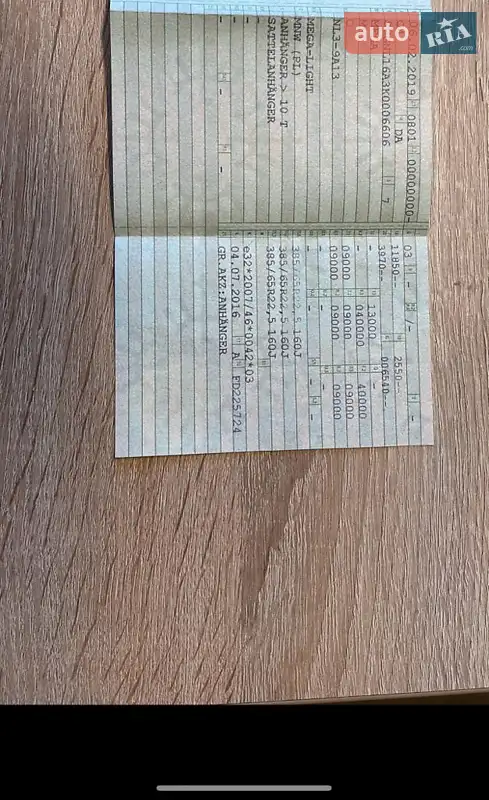 auto RIA
.02.2019 0801 00000000-
DA
16A3K0006606 7
NL3-9A13
MEGA-LIGHT
MNW (PL)
ANHÄNGER > 10 T
SATTELANHÄNGER
-
- - -
03 - /- -
11850-- 2550--
3970-- 006540--
- 13000 -
- 040000 40000
09000 09000 09000
09000 09000 09000
- - - -
385/65R22,5 160J
385/65R22,5 160J
385/65R22,5 160J
e32*2007/46*0042*03
04.07.2016 A FD225724
GR.AKZ:ANHÄNGER